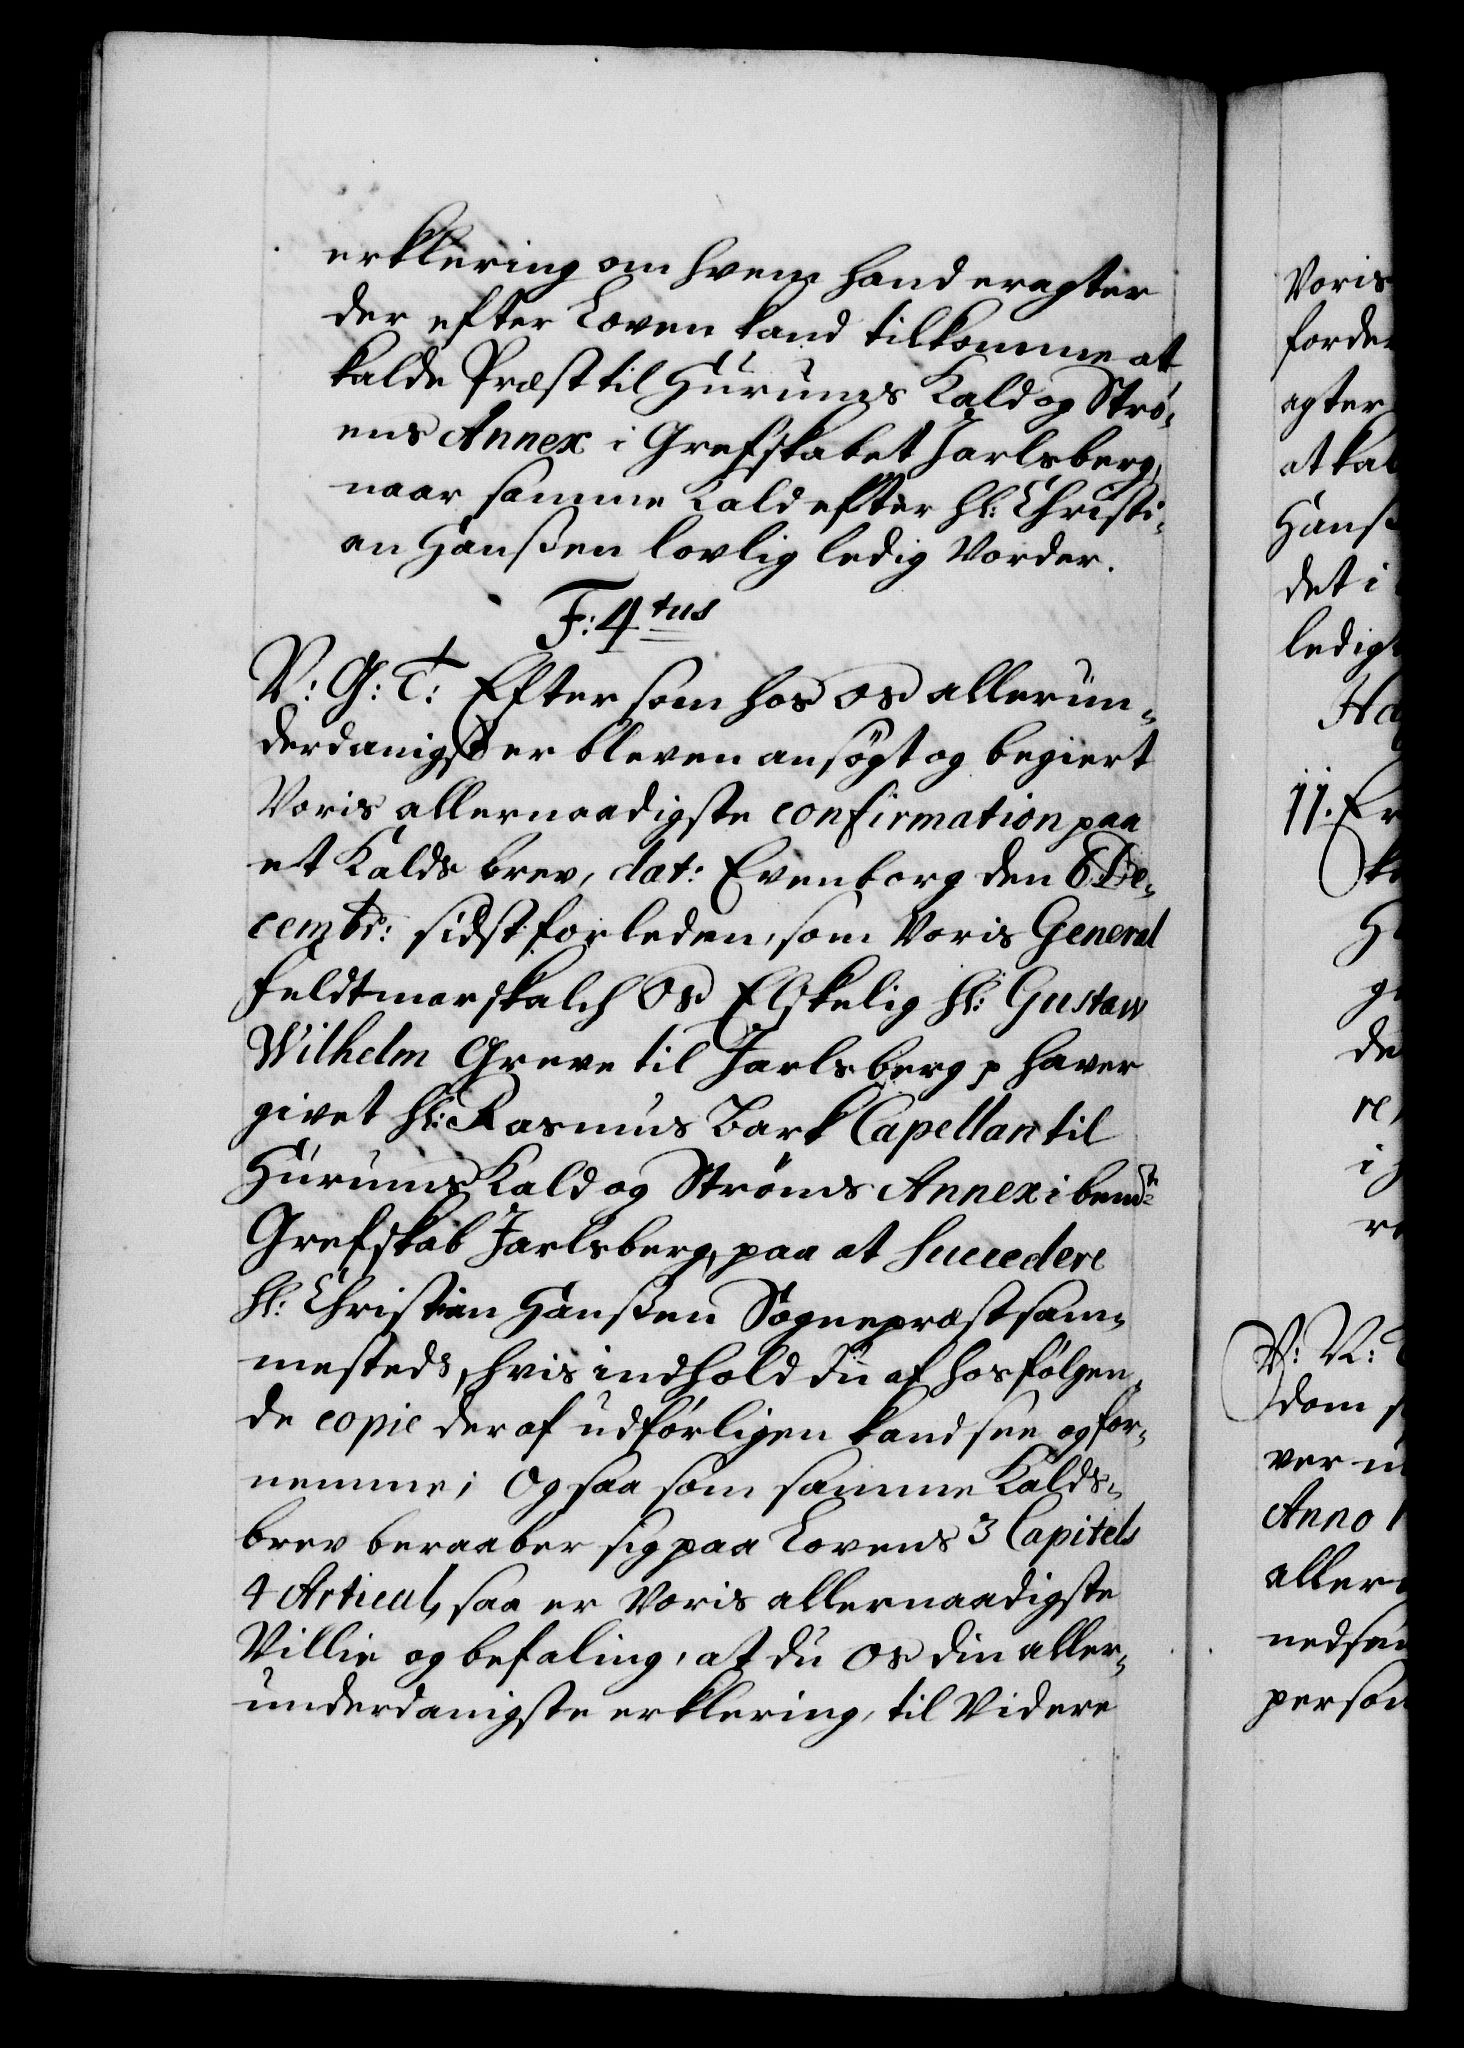 erklering om hvem hand eragter
der efter Loven kand tilkomme at
kalde Præst til Hurums Kald og Strö-
ens Annex i Grefskabet Jarlsberg,
naar samme Kald efter Hl: Christi-
an Hansßen lovlig ledig Vorder.
F: 4tus
V: G: T: Eftersom hos os allerun-
derdanigst er bleven ansøgt og begiert
Voris allernaadigste confirmation paa
et Kalds brev, dat: Evenborg den 6 De-
cembr: sidstforleden, som Voris General
feldtmarskalch Os Elskelig Hl: Gustav
Wilhelm Greve til Jarlsberg p haver
givet Hl: Rasmus Bark Capellan til
Hurums Kald og Ströms Annex i bemte
Grefskab Jarlsberg, paa at Succedere
Hl: Christian Hansßen Sognepræst sam-
mesteds, hvis indhold du af hosfølgen-
de copie deraf udførligen kand see og for-
nemme; Og saasom samme Kalds-
brev beraaber sig paa Lovens 3 Capitels
4 Articul, saa er Voris allernaadigste
Villie og befaling, at du Os din aller-
underdanigste erklering, til Videre
Voris
agter
det i
11. Er
V: N:
dom
Anno 1
person